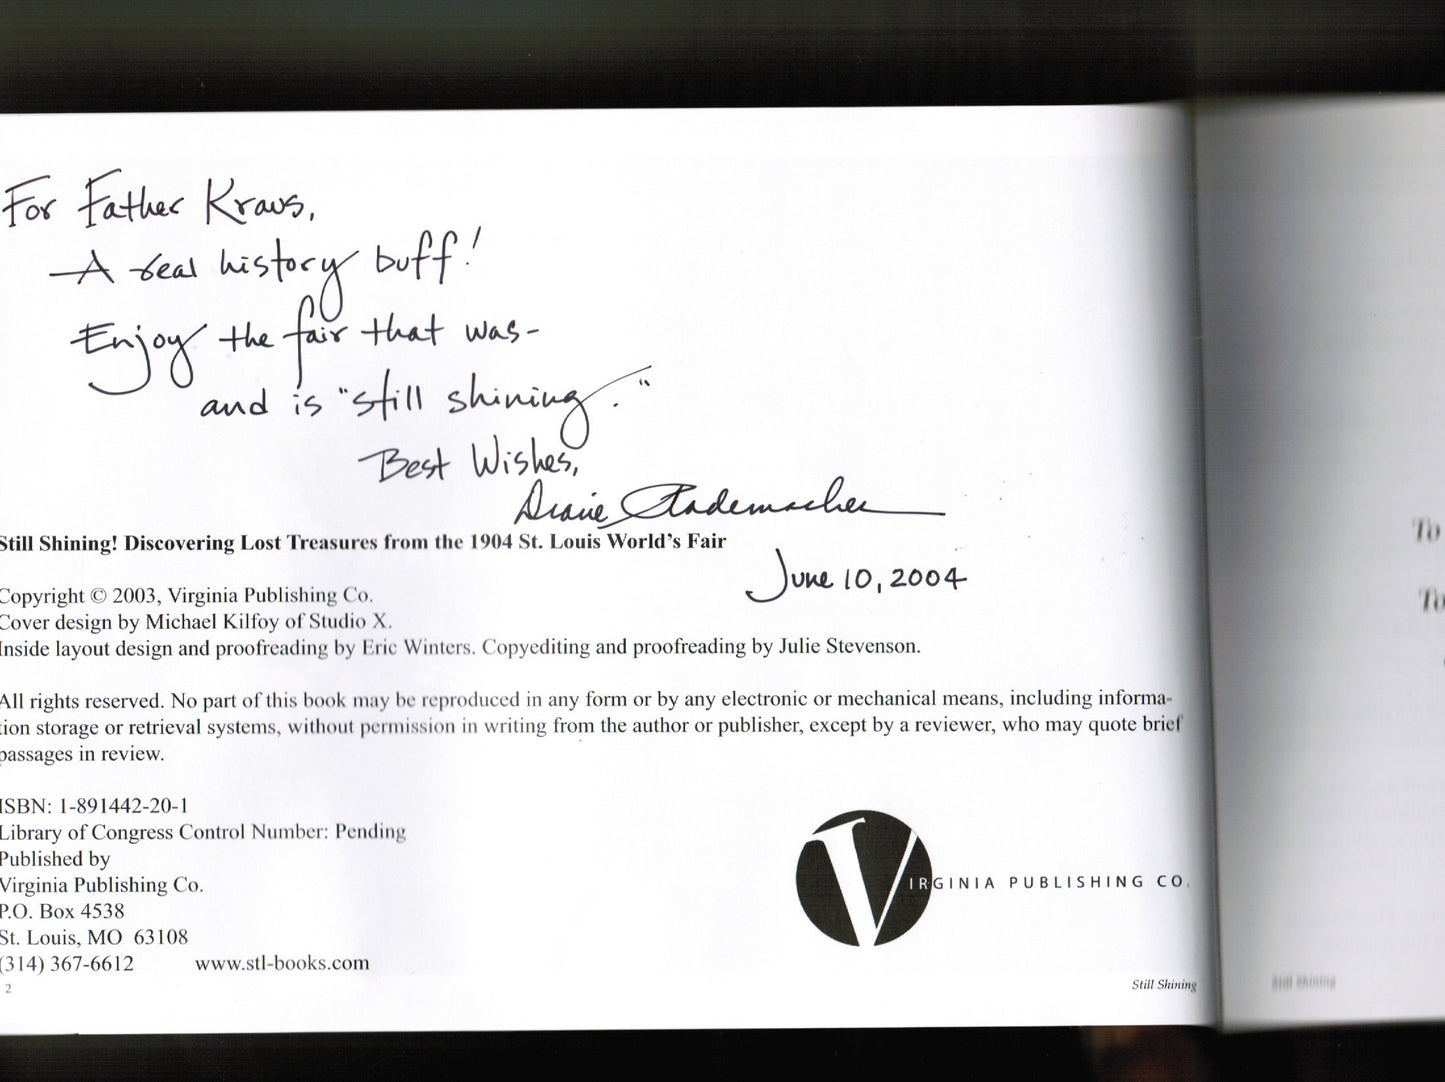 For Father Kraus,
A real history buff!
Enjoy the fair that was-
and is "still shining."
Best Wishes,
Diane Rademacher
Still Shining! Discovering Lost Treasures from the 1904 St. Louis World's Fair
June 10, 2004
Copyright © 2003, Virginia Publishing Co.
Cover design by Michael Kilfoy of Studio X.
Inside layout design and proofreading by Eric Winters. Copyediting and proofreading by Julie Stevenson.
All rights reserved. No part of this book may be reproduced in any form or by any electronic or mechanical means, including informa-
tion storage or retrieval systems, without permission in writing from the author or publisher, except by a reviewer, who may quote brief
passages in review.
ISBN: 1-891442-20-1
Library of Congress Control Number: Pending
Published by
Virginia Publishing Co.
P.O. Box 4538
St. Louis, MO 63108
(314) 367-6612 www.stl-books.com
VIRGINIA PUBLISHING CO.
2
Still Shining
To
To
Still Shining